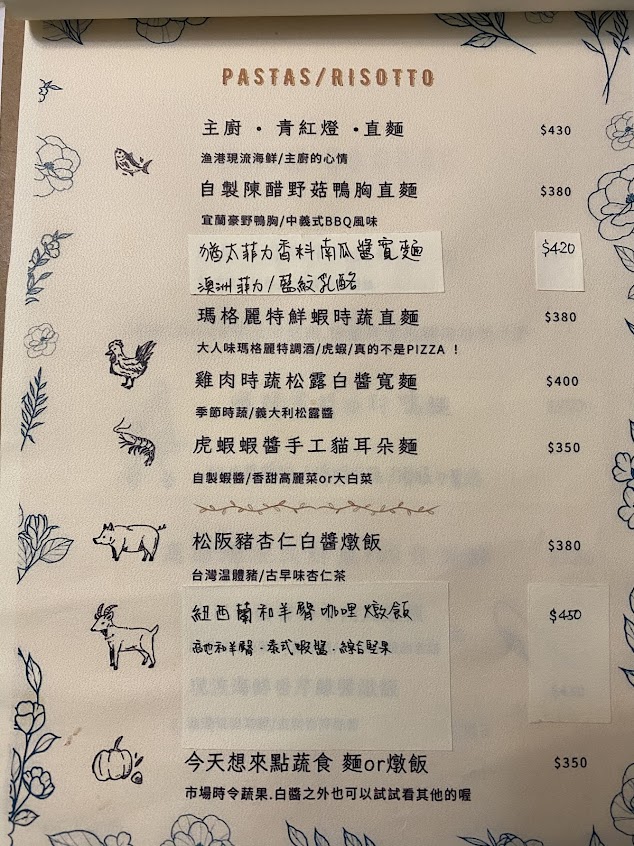 PASTAS/RISOTTO
主廚・青紅燈・直麵 $430
漁港現流海鮮/主廚的心情
自製陳醋野菇鴨胸直麵 $380
宜蘭豪野鴨胸/中義式BBQ風味
猶太菲力香料南瓜醬寬麵 $420
澳洲菲力/藍紋乳酪
瑪格麗特鮮蝦時蔬直麵 $380
大人味瑪格麗特調酒/虎蝦/真的不是PIZZA !
雞肉時蔬松露白醬寬麵 $400
季節時蔬/義大利松露醬
虎蝦蝦醬手工貓耳朵麵 $350
自製蝦醬/香甜高麗菜or大白菜
松阪豬杏仁白醬燉飯 $380
台灣温體豬/古早味杏仁茶
紐西蘭和羊臀咖哩燉飯 $450
和羊臀・泰式蝦醬・綜合堅果
今天想來點蔬食 麵or燉飯 $350
市場時令蔬果.白醬之外也可以試試看其他的喔